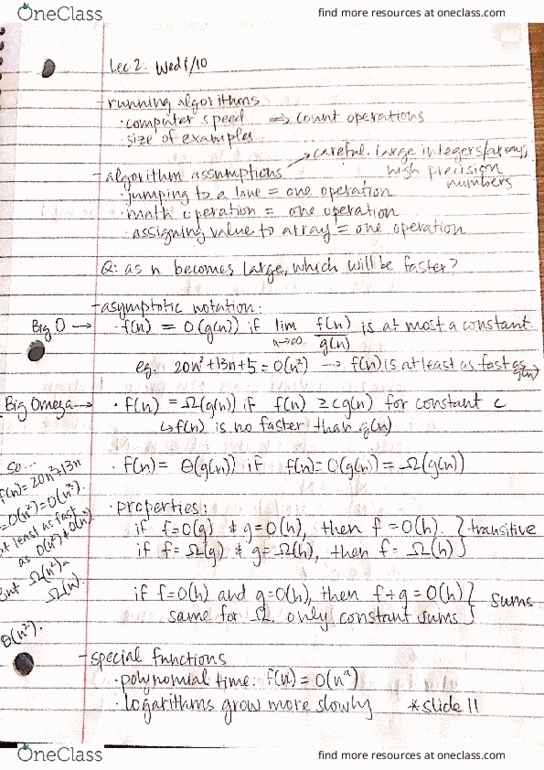 OneClass
find more resources at oneclass.com
Lec 2: Wed 1/10
- running algorithms
· computer speed ⇒ count operations
· size of examples
- algorithm assumptions → careful: large integers/arrays, high precision numbers
· jumping to a line = one operation
· math operation = one operation
· assigning value to array = one operation
Q: as n becomes large, which will be faster?
- asymptotic notation:
Big O → · f(n) = O(g(n)) if lim n→∞ f(n)/g(n) is at most a constant
eg. 20n²+13n+5 = O(n²) → f(n) is at least as fast as g(n)
Big Omega → · f(n) = Ω(g(n)) if f(n) ≥ cg(n) for constant c
↳ f(n) is no faster than g(n)
· f(n) = Θ(g(n)) if f(n) = O(g(n)) = Ω(g(n))
so...
f(n) = 20n²+13n
= O(n²) = O(n³).
at least as fast
as O(n²) + O(n³)
Ω(n²) =
Ω(n).
Θ(n²).
· properties:
if f=O(g) & g=O(h), then f=O(h). } transitive
if f=Ω(g) & g=Ω(h), then f=Ω(h)
if f=O(h) and g=O(h), then f+g=O(h) } sums
same for Ω. only constant sums
- special functions
· polynomial time: f(n) = O(nᵃ)
· logarithms grow more slowly *slide 11
OneClass
find more resources at oneclass.com